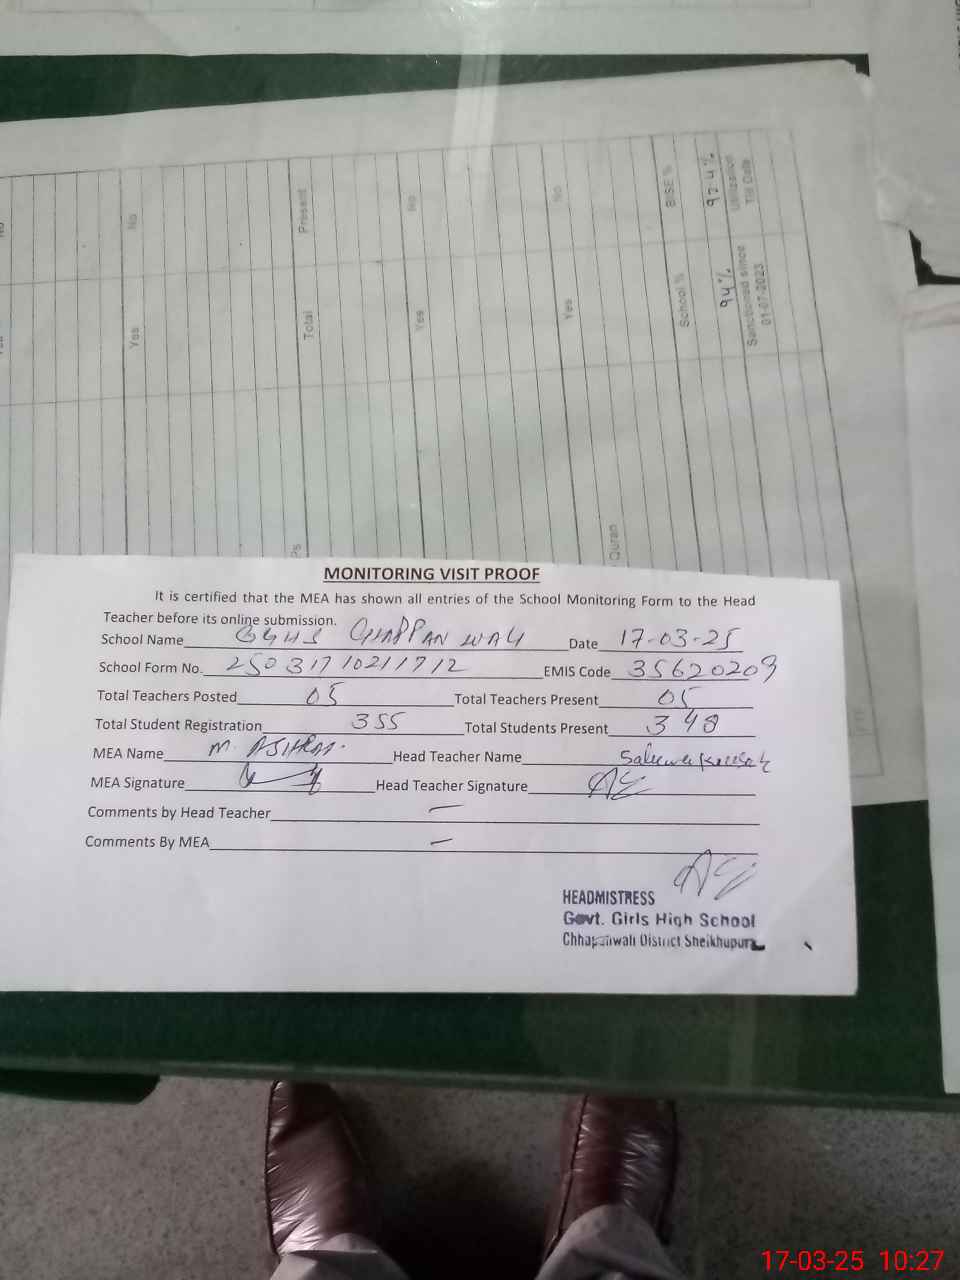 No
Present
No
No
BISE %
92.4%
Utilization
Till Date
Yes
Total
Yes
Yes
School %
94%
Sanctioned since
01-07-2023
Quran
MONITORING VISIT PROOF
It is certified that the MEA has shown all entries of the School Monitoring Form to the Head
Teacher before its online submission.
School Name GGHS CHAPPAN WALI Date 17-03-25
School Form No. 25031710211712 EMIS Code 35620209
Total Teachers Posted 05 Total Teachers Present 05
Total Student Registration 355 Total Students Present 348
MEA Name M. ASHRAF. Head Teacher Name
MEA Signature Head Teacher Signature
Comments by Head Teacher —
Comments By MEA —
HEADMISTRESS
Govt. Girls High School
Chhapanwali District Sheikhupura
17-03-25 10:27